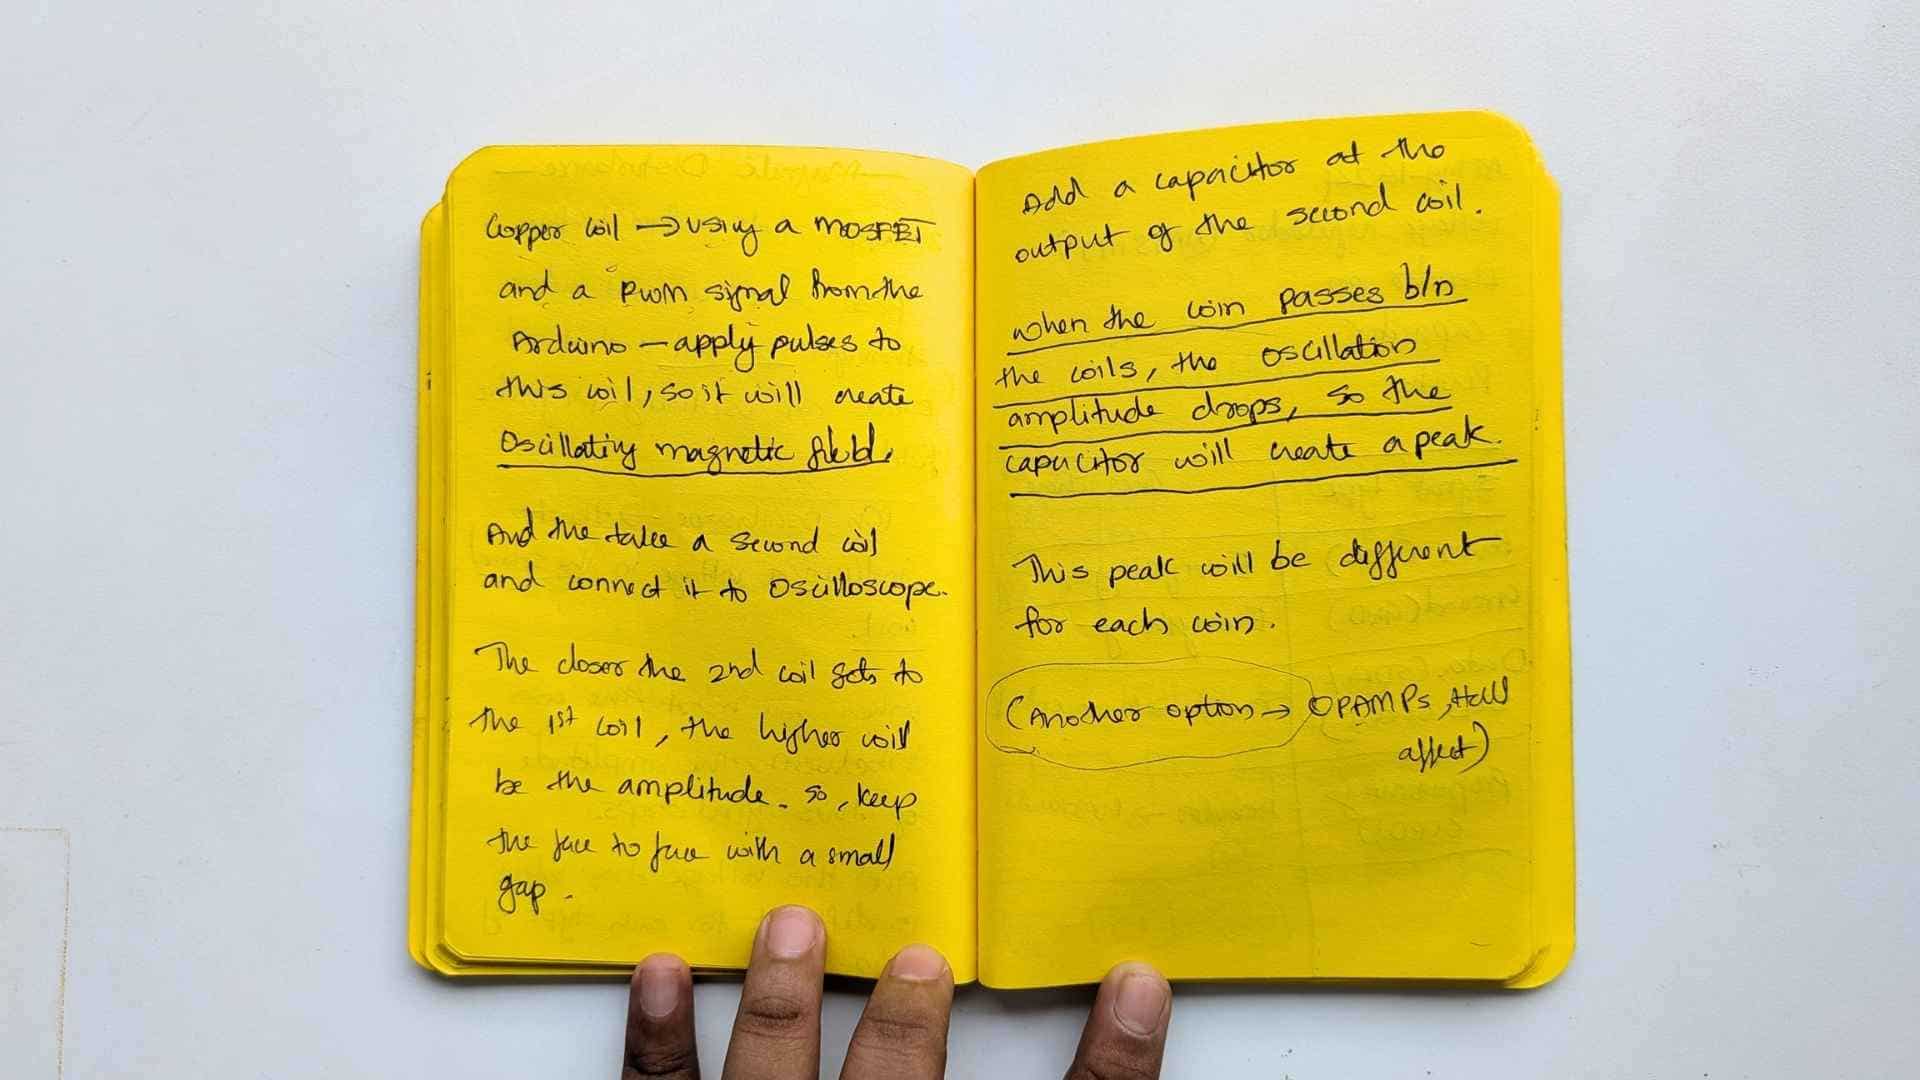 Copper coil → using a MOSFET
and a PWM signal from the
Arduino — apply pulses to
this coil, so it will create
Oscillating magnetic field.
And the take a second coil
and connect it to Oscilloscope.
The closer the 2nd coil gets to
the 1st coil, the higher will
be the amplitude. so, keep
the face to face with a small
gap.
Add a capacitor at the
output of the second coil.
when the coin passes b/n
the coils, the oscillation
amplitude drops, so the
capacitor will create a peak.
This peak will be different
for each coin.
(Another option → OPAMPs, Hall
affect)